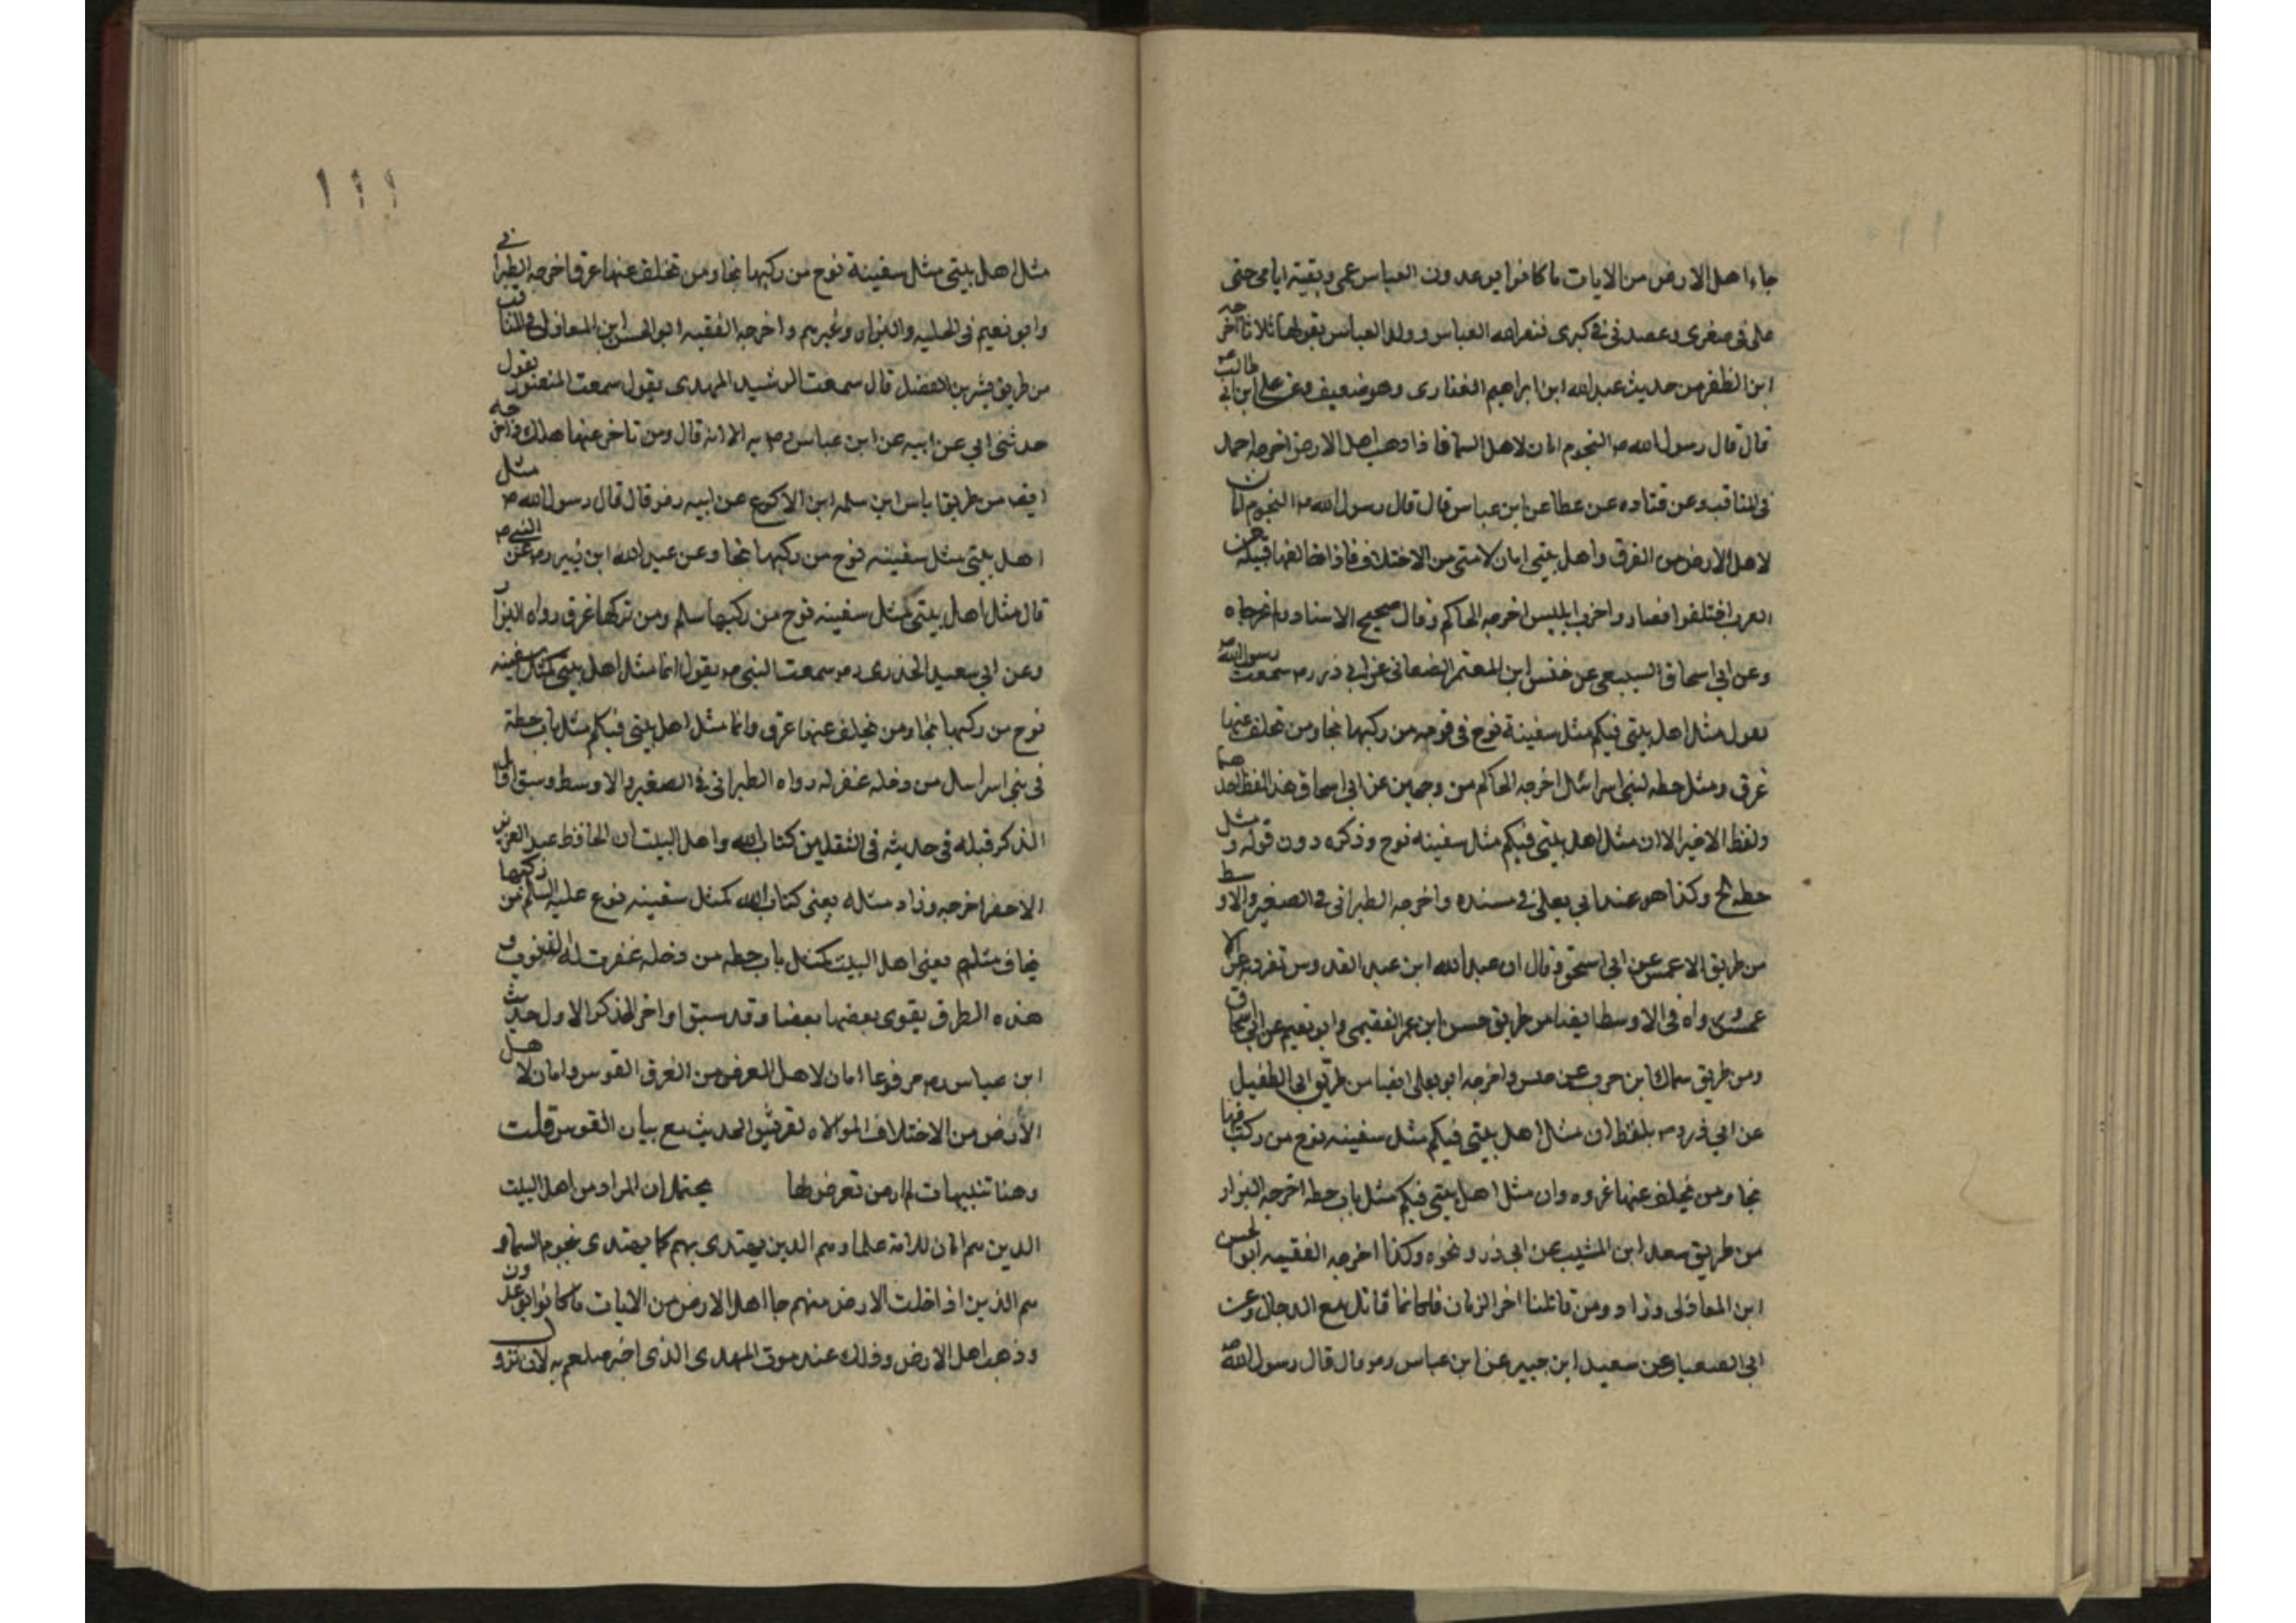 جاء اهل الارض من الايات ما كانوا يوعدون العباس عمى وبقية ابايى حتى
على فى صغرى وعضدنى فى كبرى فنصر الله العباس وولد العباس يقولها ثلاثا اخرجه
ابن المظفر من حديث عبدالله ابن ابراهيم الغفارى وهو ضعيف وعن على ابن ابى طالب
قال قال رسول الله ص النجوم امان لاهل السما فاذا ذهب اهل الارض اخرجه احمد
فى المناقب وعن قتاده عن عطا عن ابن عباس قال قال رسول الله ص النجوم امان
لاهل الارض من الغرق واهل بيتى امان لامتى من الاختلاف فاذا خالفها قبيلة من
العرب اختلفوا فصاروا حزب ابليس اخرجه الحاكم وقال صحيح الاسناد ولم يخرجاه
وعن ابى اسحاق السبيعى عن حنش ابن المعتمر الصنعانى عن ابى ذر رض سمعت رسول الله ص
يقول مثل اهل بيتى فيكم مثل سفينة نوح فى قومه من ركبها نجا ومن تخلف عنها
غرق ومثل حطه لبنى اسرائيل اخرجه الحاكم من وجهين عن ابى اسحاق هذا لفظ احدهما
ولفظ الاخير الا ان مثل اهل بيتى فيكم مثل سفينه نوح وذكره دون قوله ومثل
حطه الخ وكذا هو عند ابى يعلى فى مسنده واخرجه الطبرانى فى الصغير والاوسط
من طريق الاعمش عن ابى اسحق وقال ان عبدالله ابن عبد القدوس تفرد به عن الا
عمش ورواه فى الاوسط ايضا من طريق حسن ابن عمر الفقيمى وابو نعيم عن ابى اسحاق
ومن طريق سماك ابن حرب عن حنش واخرجه ابو يعلى ايضا من طريق ابى الطفيل
عن ابى ذر رض بلفظ ان مثل اهل بيتى فيكم مثل سفينه نوح من ركب فيها
نجا ومن تخلف عنها غرق وان مثل اهل بيتى فيكم مثل باب حطه اخرجه البزار
من طريق سعد ابن المسيب عن ابى ذر ونحوه وكذا اخرجه الفقيه ابو الحسن
ابن المغازلى وزاد ومن قاتلنا اخر الزمان فكانما قاتل مع الدجال وعن
ابى الصهباء عن سعيد ابن جبير عن ابن عباس رض قال قال رسول الله ص
١١١
مثل اهل بيتى مثل سفينة نوح من ركبها نجا ومن تخلف عنها غرق اخرجه الطبرانى
وابو نعيم فى الحليه والبزار وغيرهم واخرجه الفقيه ابو الحسن ابن المغازلى فى المناقب
من طريق بشر بن الفضل قال سمعت الرشيد المهدى يقول سمعت المنصور يقول
حدثنى ابى عن ابيه عن ابن عباس رض به الا انه قال ومن تاخر عنها هلك واخرجه
ايضا من طريق اياس ابن سلمه ابن الاكوع عن ابيه رض قال قال رسول الله ص مثل
اهل بيتى مثل سفينه نوح من ركبها نجا وعن عبدالله ابن زبير رض عن النبى ص
قال مثل اهل بيتى كمثل سفينه نوح من ركبها سلم ومن تركها غرق رواه البزار
وعن ابى سعيد الخدرى رض سمعت النبى ص يقول انما مثل اهل بيتى كمثل سفينه
نوح من ركبها نجا ومن تخلف عنها غرق وانما مثل اهل بيتى فيكم مثل باب حطة
فى بنى اسرائيل من دخله غفر له رواه الطبرانى فى الصغير والاوسط وسبق اوايل
الذكر قبله فى حديثه فى الثقلين كتاب الله واهل البيت ان الحافظ عبد العزيز
الاخضر اخرجه وزاد مثله يعنى كتاب الله كمثل سفينه نوح عليه السلم من ركبها
نجا ف مثلهم يعنى اهل البيت كمثل باب حطه من دخله غفرت له الذنوب و
هذه الطرق يقوى بعضها بعضا وقد سبق اواخر الذكر الاول حديث
ابن عباس رض مرفوعا امان لاهل الارض من الغرق القوس وامان لاهل
الارض من الاختلاف الموالاه لقريش الحديث مع بيان القوس قلت
وهنا تنبيهات لم ار من تعرض لها يحتمل ان المراد من اهل البيت
الذين هم امان للامة علماوهم الذين يهتدى بهم كما يهتدى بنجوم السما و
هم الذين اذا خلت الارض منهم جا اهل الارض من الايات ما كانوا يوعدون
وذهب اهل الارض وذلك عند موت المهدى الذى اخبر صلعم به لان نزول